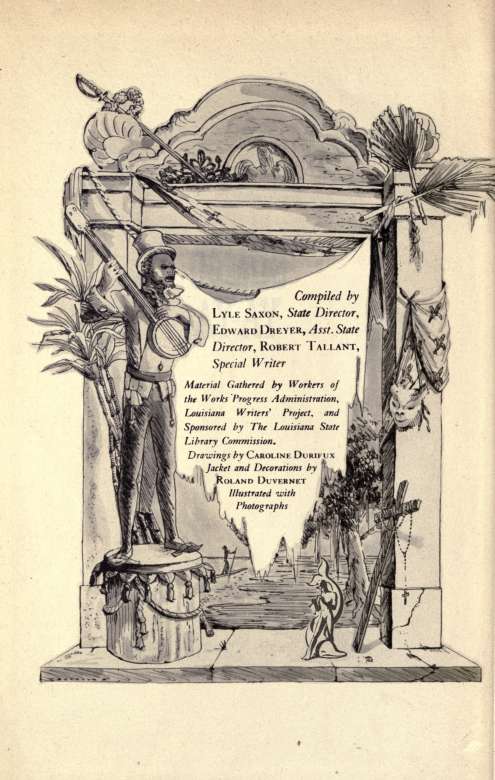 Compiled by
LYLE SAXON, State Director,
EDWARD DREYER, Asst. State
Director, ROBERT TALLANT,
Special Writer
Material Gathered by Workers of
the Works Progress Administration,
Louisiana Writers' Project, and
Sponsored by The Louisiana State
Library Commission.
Drawings by CAROLINE DURIEUX
Jacket and Decorations by
ROLAND DUVERNET
Illustrated with
Photographs